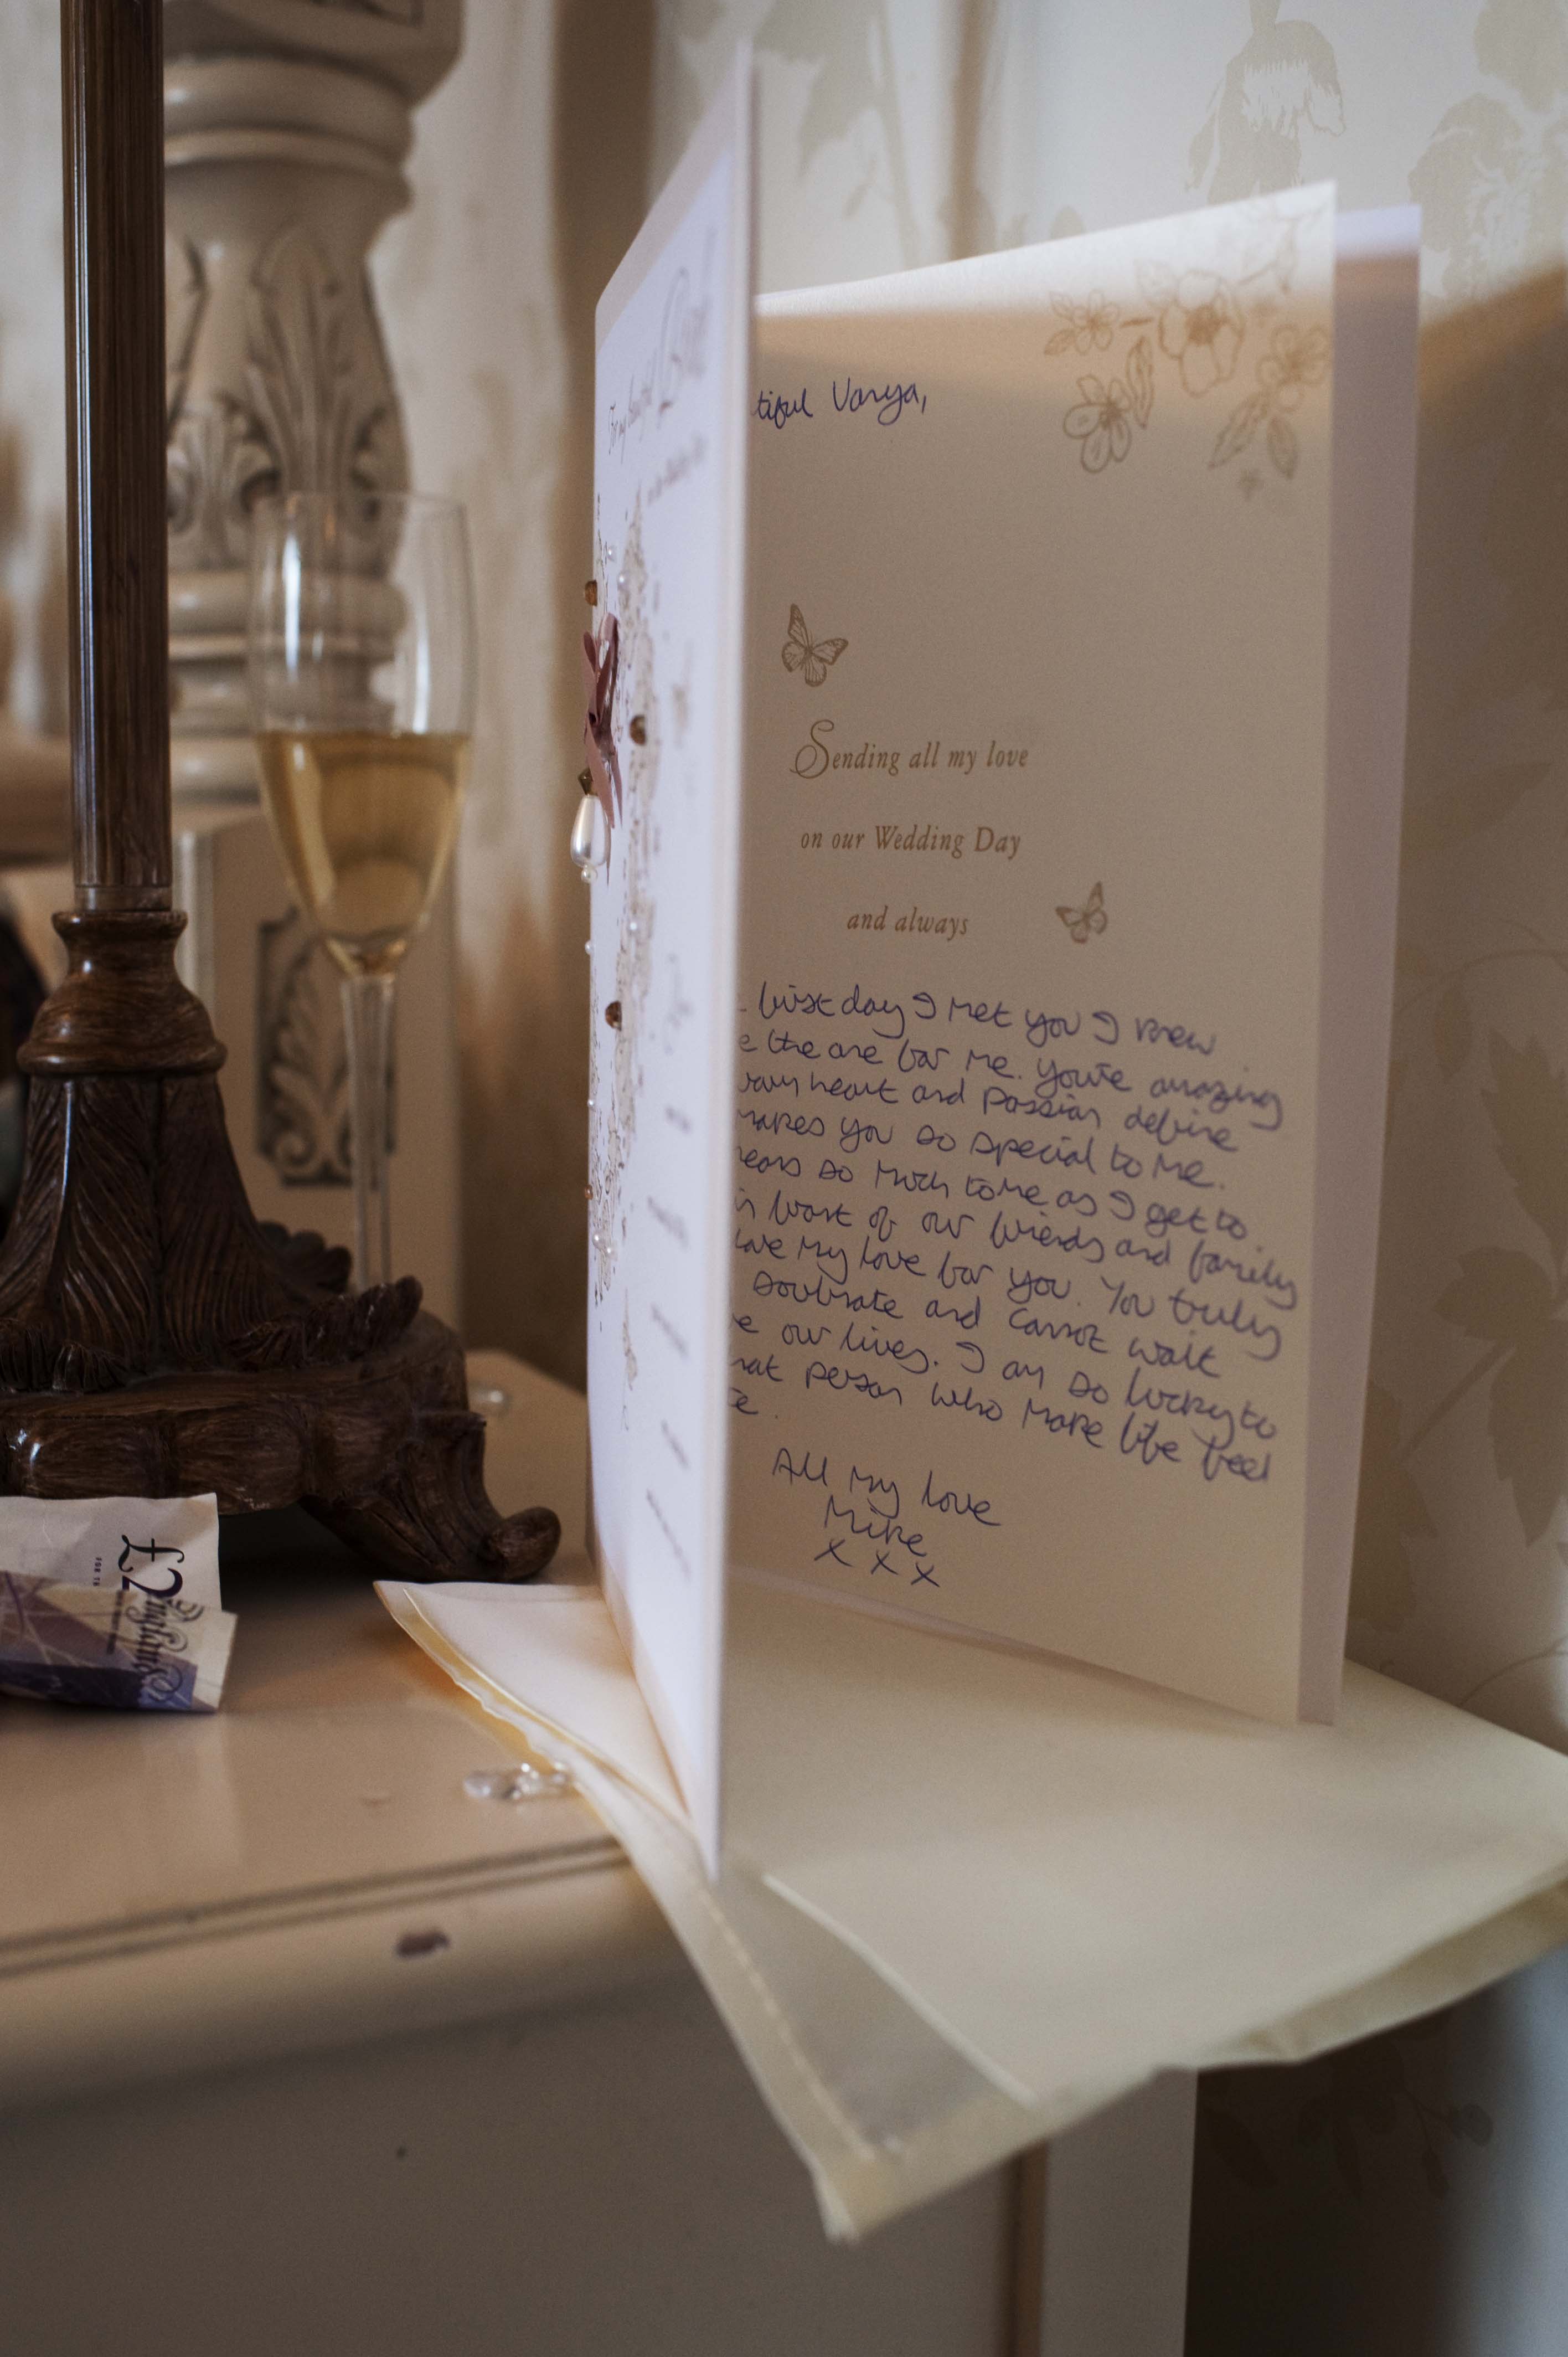 For my beautiful Bride
tiful Vanya,
Sending all my love
on our Wedding Day
and always
first day I met you I knew
e the one for me. You're amazing
heart and passion define
makes you so special to me.
means so much to me as I get to
in front of our friends and family
my love for you. You truly
soulmate and cannot wait
e our lives. I am so lucky to
hat person who make life feel
te.
All my love
Mike
x x x
£2